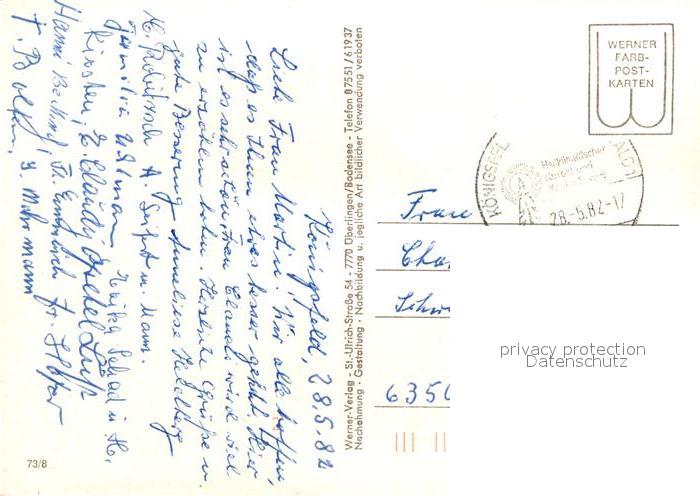 Königsfeld, 28.5.82
Liebe Frau Martin! Wir alle hoffen,
daß es Ihnen etwas besser geht. Hier
ist es sehr schön. Frau Claudi wird viel
zu erzählen haben. Herzliche Grüße u.
gute Besserung Anneliese Heldberg
A. Seifert u. Mann.
Familie
Kirsten, E. Claudi,
Hanni
F. Bolten,
Werner-Verlag - St.-Ulrich-Straße 54 - 7770 Überlingen/Bodensee - Telefon 07551/61937
Nachahmung - Gestaltung - Nachbildung u. jegliche Art bildlicher Verwendung verboten
WERNER
FARB-
POST-
KARTEN
KÖNIGSFEL
ALD
Heilklimatischer
Kurort und
28.-5.82-17
Frau
Cha
Schw
635
privacy protection
Datenschutz
73/8